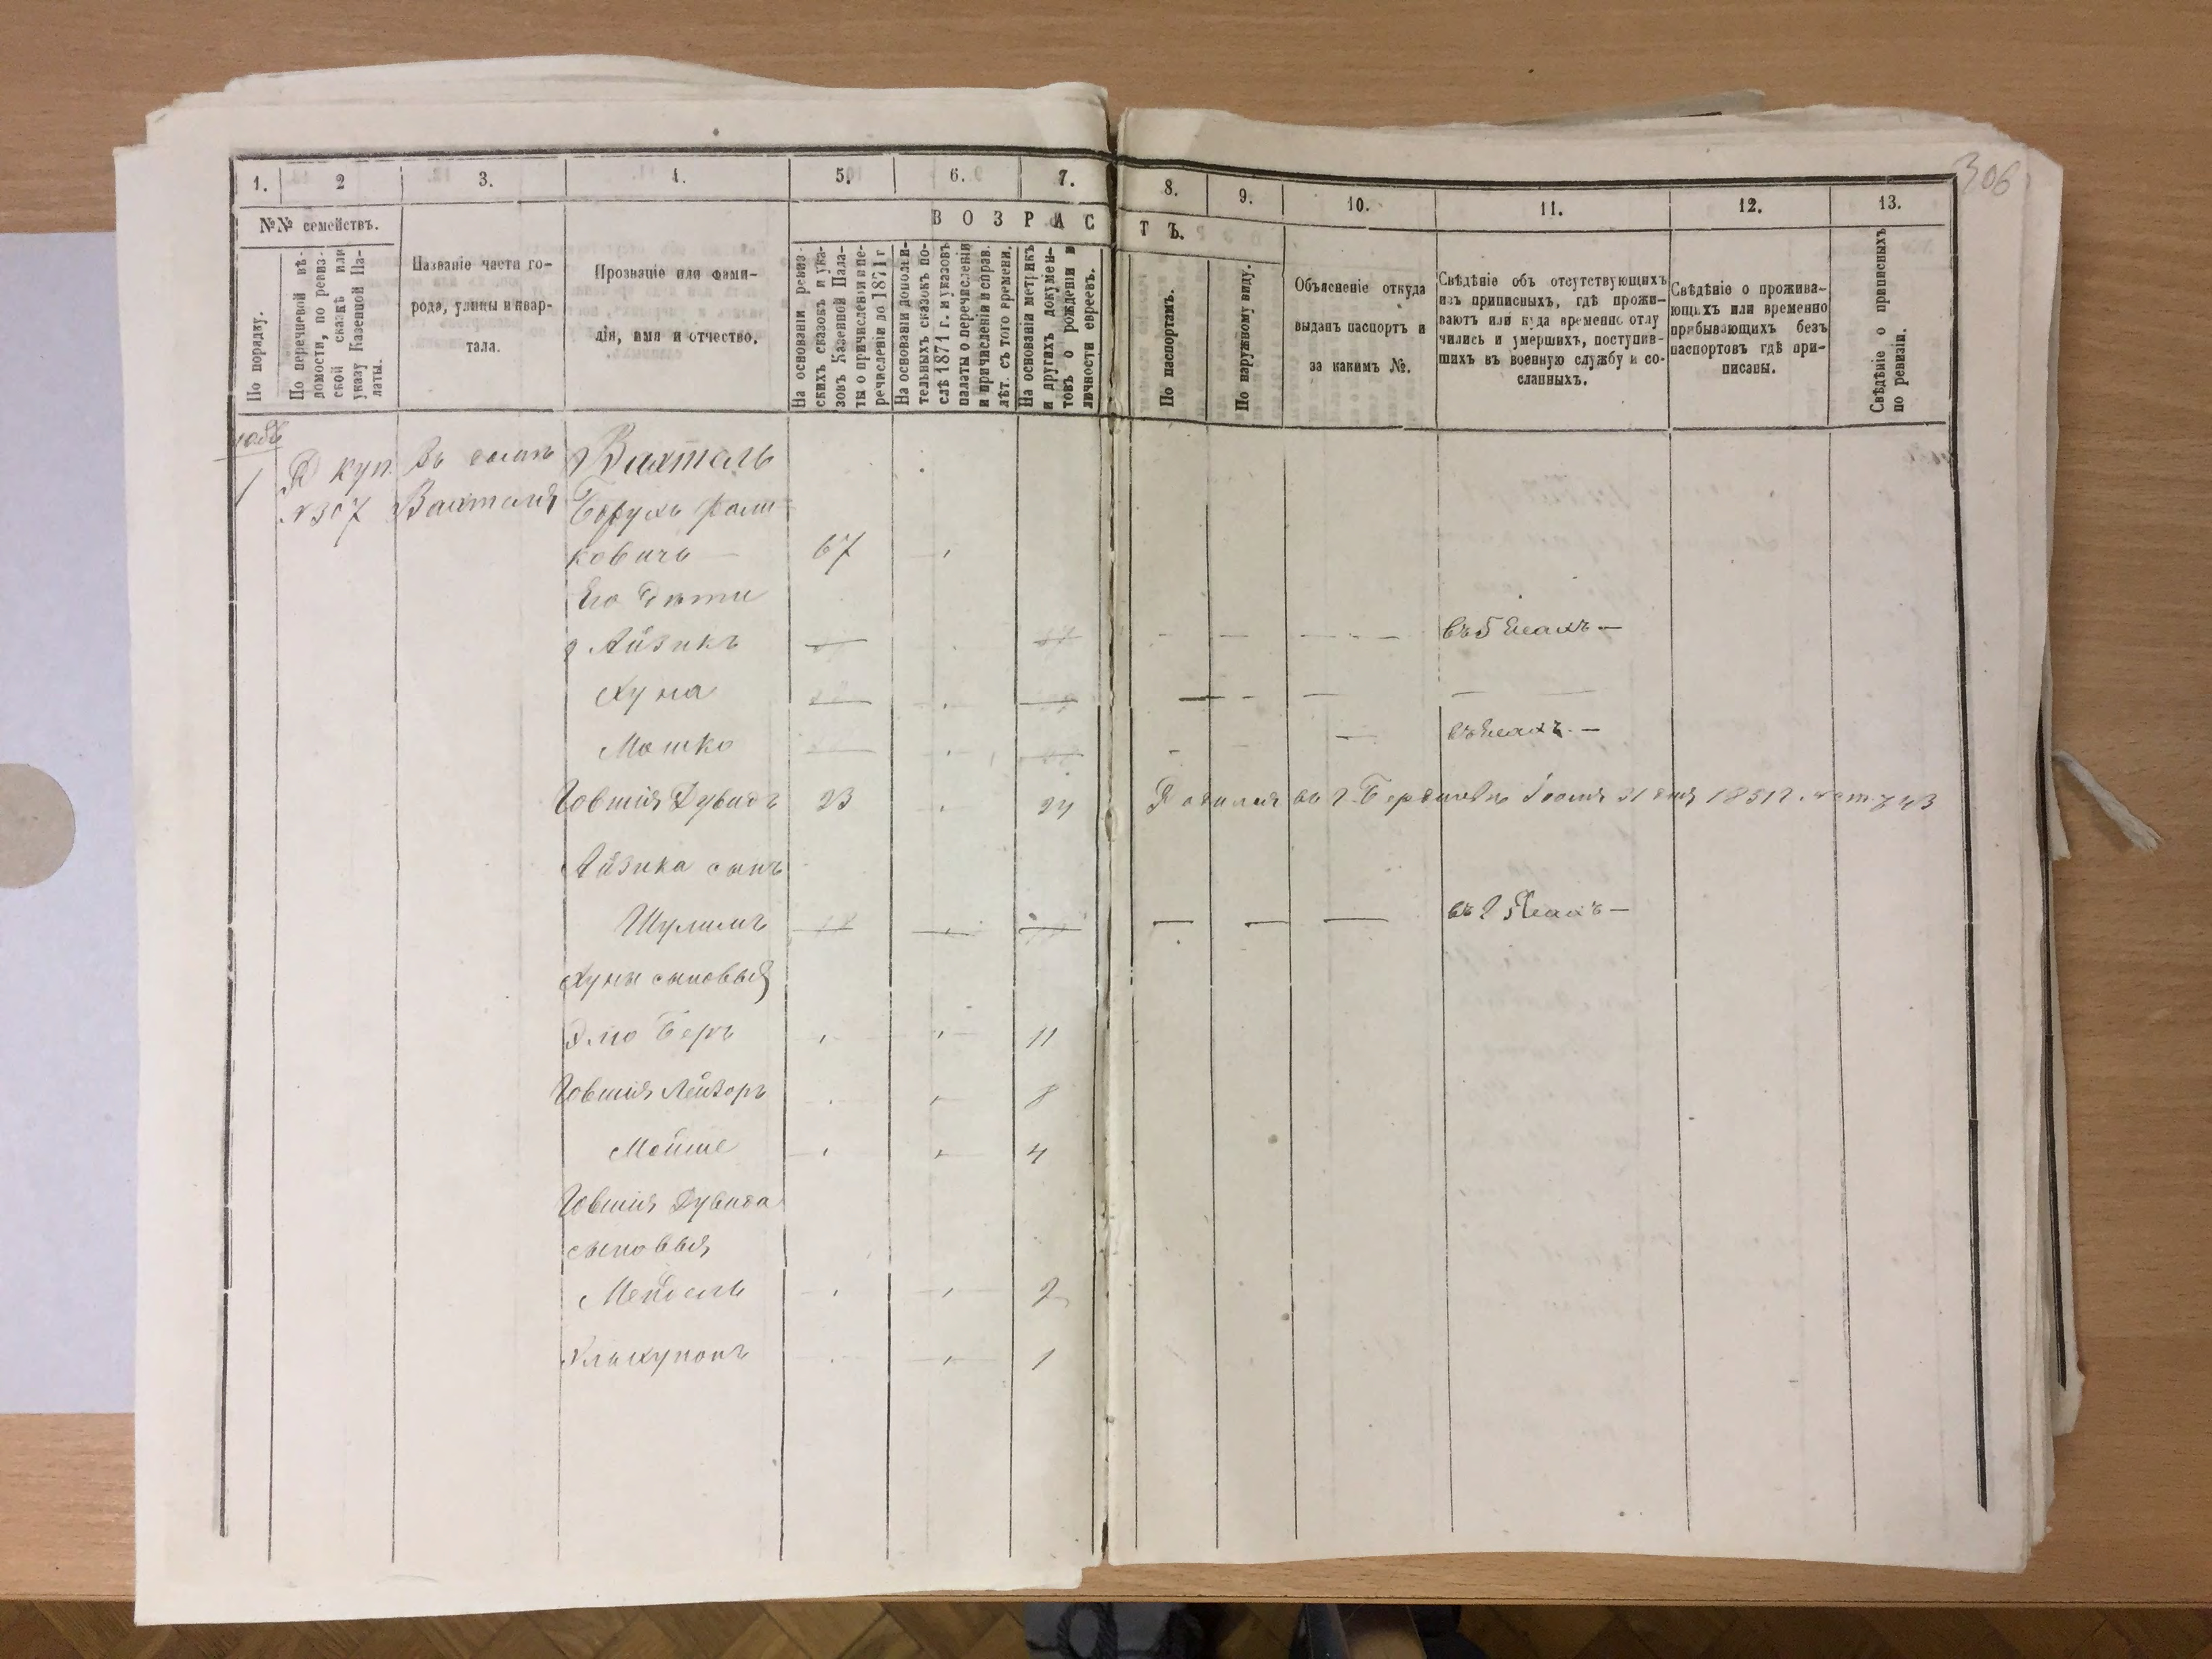 306
1. 2 3. 4. 5. 6. 7. 8. 9. 10. 11. 12. 13.
№№ семействъ.
ВОЗРАСТЪ.
По порядку.
По перечневой вѣ-
домости, по ревиз-
ской сказкѣ или
указу Казенной Па-
латы.
Названіе части го-
рода, улицы и квар-
тала.
Прозваніе или фами-
лія, имя и отчество.
На основаніи ревиз-
скихъ сказокъ и ука-
зовъ Казенной Пала-
ты о причисленіи и пе-
речисленіи до 1871 г
На основаніи дополни-
тельныхъ сказокъ по-
слѣ 1871 г. и указовъ
палаты о перечисленіи
и причисленіи и справ.
лѣт. съ того времени.
На основаніи метрикъ
и другихъ докумен-
товъ о рожденіи и
личности евреевъ.
По паспортамъ.
По наружному виду.
Объясненіе откуда
выданъ паспортъ и
за какимъ №.
Свѣдѣніе объ отсутствующихъ
изъ приписныхъ, гдѣ прожи-
ваютъ или куда временно отлу
чились и умершихъ, поступив-
шихъ въ военную службу и со-
сланныхъ.
Свѣдѣніе о прожива-
ющихъ или временно
прибывающихъ безъ
паспортовъ гдѣ при-
писаны.
Свѣдѣніе о приписныхъ
по ревизіи.
1 куп. Въ домѣ Вахтель
№307 Вахтеля Борухъ
ковичъ 67
Его дѣти
Айзикъ
Хуна
Мошко
Іовшія Дувидъ 23 24 Родился въ г. Бердичевѣ Іюля 31 дня 1851 г.
Айзика сынъ
Шулимъ
Хуны сыновья
Беръ 11
Іовшія Лейзоръ 8
Мойше 4
Іовшія Дувида
сыновья
Мендель 2
1